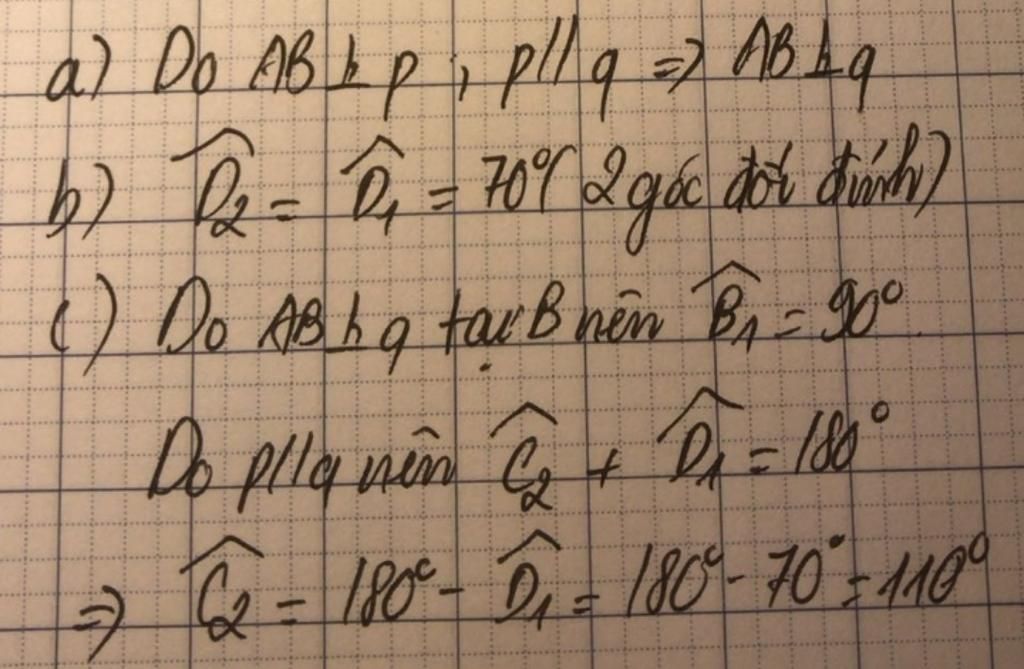 a) Do AB ⊥ p ; p // q => AB ⊥ q
b) D̂₂ = D̂₁ = 70° (2 góc đối đỉnh)
c) Do AB ⊥ q tại B nên B̂₁ = 90°.
Do p//q nên Ĉ₂ + D̂₁ = 180°
=> Ĉ₂ = 180° - D̂₁ = 180° - 70° = 110°